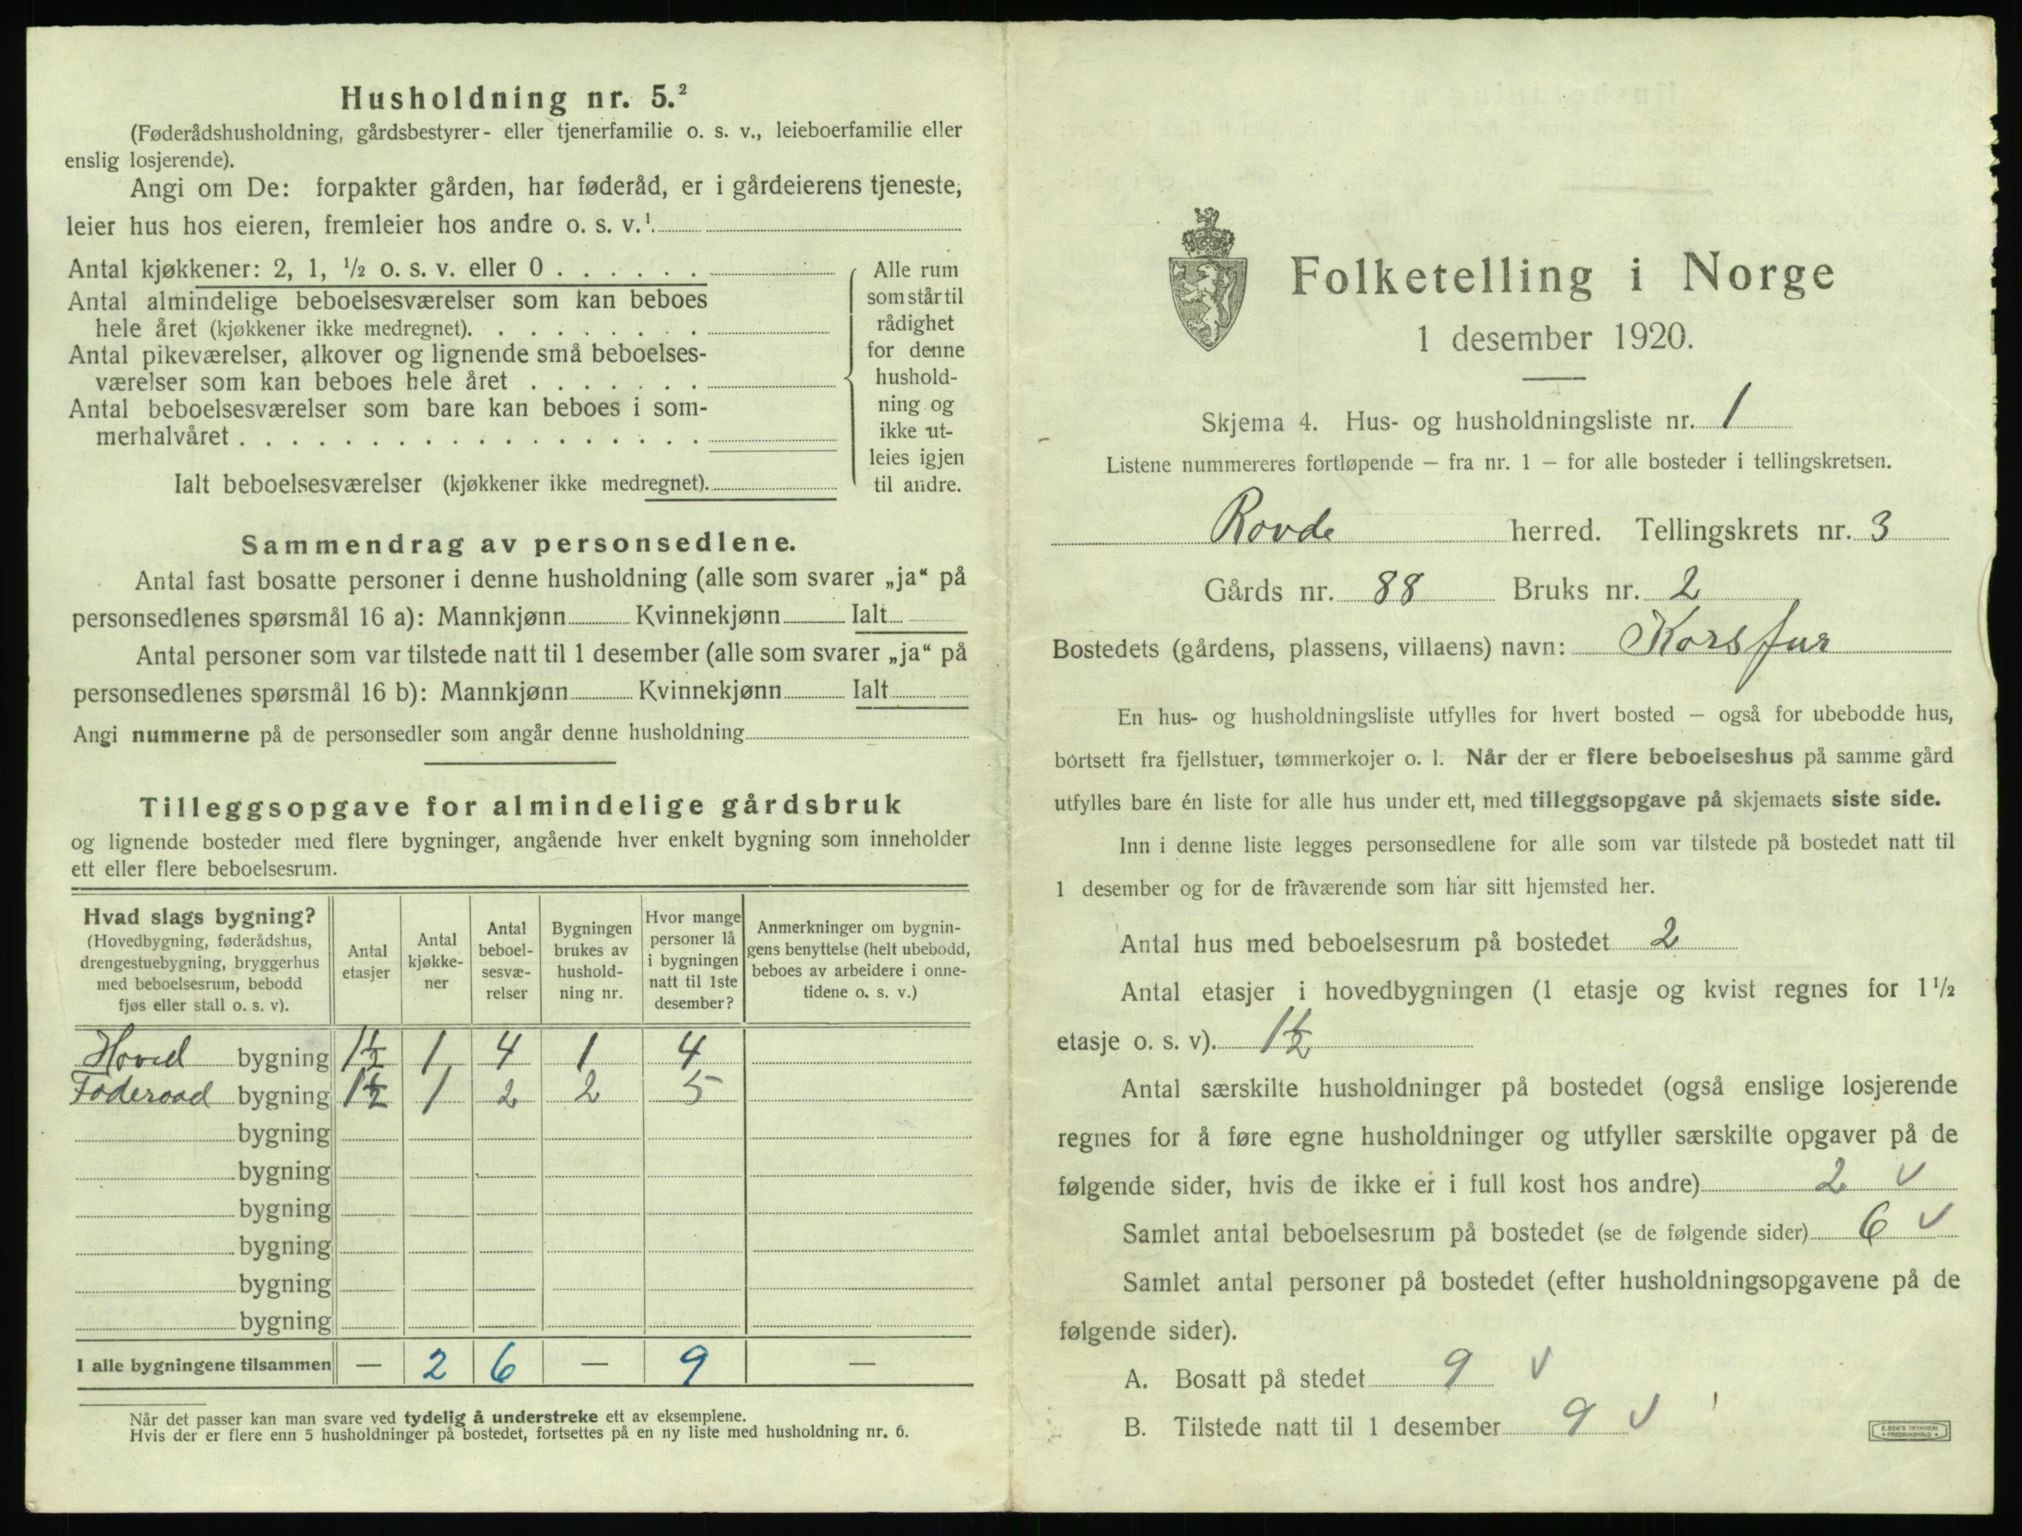 Husholdning nr. 5.²
(Føderådshusholdning, gårdsbestyrer- eller tjenerfamilie o. s. v., leieboerfamilie eller
enslig losjerende).
Angi om De: forpakter gården, har føderåd, er i gårdeierens tjeneste,
leier hus hos eieren, fremleier hos andre o. s. v.¹
Antal kjøkkener: 2, 1, ½ o. s. v. eller 0 . . . . . .
Antal almindelige beboelsesværelser som kan beboes
hele året (kjøkkener ikke medregnet). . . . . . . . .
Antal pikeværelser, alkover og lignende små beboelses-
værelser som kan beboes hele året . . . . . . .
Antal beboelsesværelser som bare kan beboes i som-
merhalvåret . . . . . . . . . . . . . . . . . .
Ialt beboelsesværelser (kjøkkener ikke medregnet).
Alle rum
som står til
rådighet
for denne
hushold-
ning og
ikke ut-
leies igjen
til andre.
Sammendrag av personsedlene.
Antal fast bosatte personer i denne husholdning (alle som svarer „ja“ på
personsedlenes spørsmål 16 a): Mannkjønn Kvinnekjønn Ialt
Antal personer som var tilstede natt til 1 desember (alle som svarer „ja“ på
personsedlenes spørsmål 16 b): Mannkjønn Kvinnekjønn Ialt
Angi nummerne på de personsedler som angår denne husholdning
Tilleggsopgave for almindelige gårdsbruk
og lignende bosteder med flere bygninger, angående hver enkelt bygning som inneholder
ett eller flere beboelsesrum.
Hvad slags bygning?
(Hovedbygning, føderådshus,
drengestuebygning, bryggerhus
med beboelsesrum, bebodd
fjøs eller stall o. s. v).
Antal
etasjer
Antal
kjøkke-
ner
Antal
beboel-
sesvæ-
relser
Bygningen
brukes av
hushold-
ning nr.
Hvor mange
personer lå
i bygningen
natt til 1ste
desember?
Anmerkninger om bygnin-
gens benyttelse (helt ubebodd,
beboes av arbeidere i onne-
tidene o. s. v.)
Hoved bygning 1½ 1 4 1 4
Føderaad bygning 1½ 1 2 2 5
bygning
bygning
bygning
bygning
bygning
bygning
I alle bygningene tilsammen — 2 6 — 9 —
Når det passer kan man svare ved tydelig å understreke ett av eksemplene.
Hvis der er flere enn 5 husholdninger på bostedet, fortsettes på en ny liste med husholdning nr. 6.
Folketelling i Norge
1 desember 1920.
Skjema 4. Hus- og husholdningsliste nr. 1
Listene nummereres fortløpende — fra nr. 1 — for alle bosteder i tellingskretsen.
Rovde herred. Tellingskrets nr. 3
Gårds nr. 88 Bruks nr. 2
Bostedets (gårdens, plassens, villaens) navn: Korsfur
En hus- og husholdningsliste utfylles for hvert bosted — også for ubebodde hus,
bortsett fra fjellstuer, tømmerkojer o. l. Når der er flere beboelseshus på samme gård
utfylles bare én liste for alle hus under ett, med tilleggsopgave på skjemaets siste side.
Inn i denne liste legges personsedlene for alle som var tilstede på bostedet natt til
1 desember og for de fraværende som har sitt hjemsted her.
Antal hus med beboelsesrum på bostedet 2
Antal etasjer i hovedbygningen (1 etasje og kvist regnes for 1½
etasje o. s. v). 1½
Antal særskilte husholdninger på bostedet (også enslige losjerende
regnes for å føre egne husholdninger og utfyller særskilte opgaver på de
følgende sider, hvis de ikke er i full kost hos andre) 2 v
Samlet antal beboelsesrum på bostedet (se de følgende sider) 6 v
Samlet antal personer på bostedet (efter husholdningsopgavene på de
følgende sider).
A. Bosatt på stedet 9 v
B. Tilstede natt til 1 desember 9 v